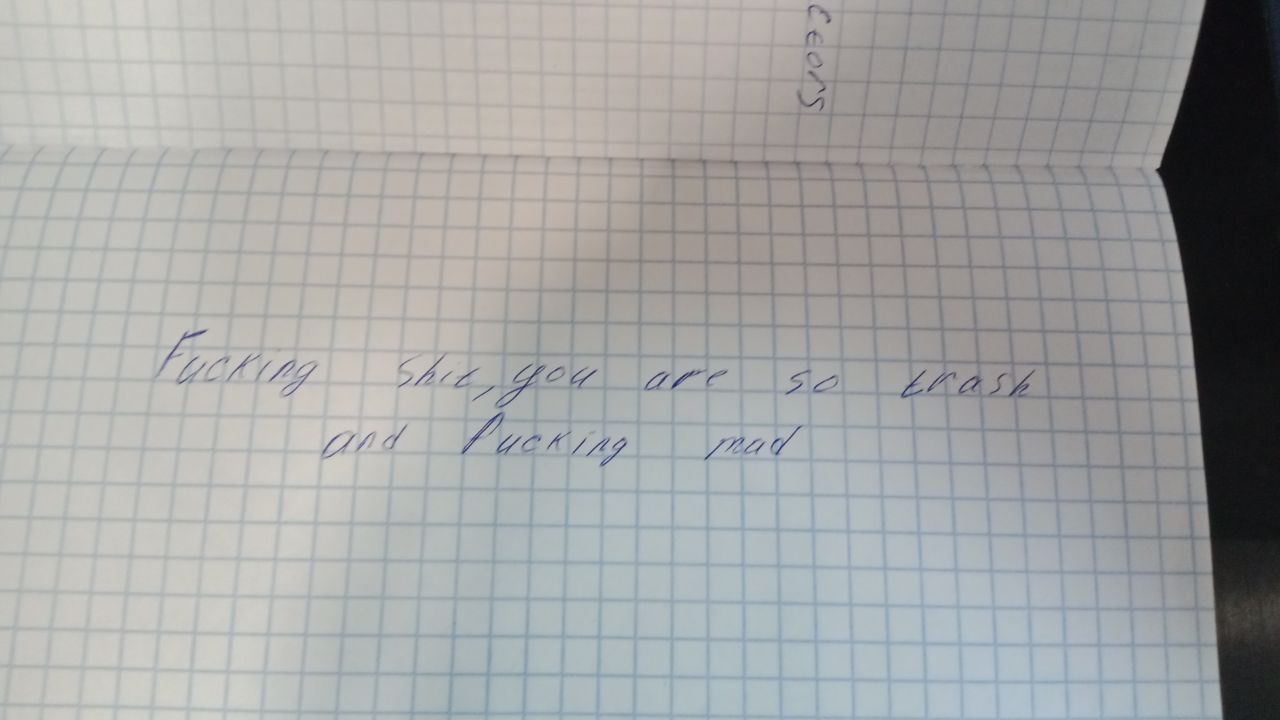 Fucking shit, you are so trash
and fucking mad